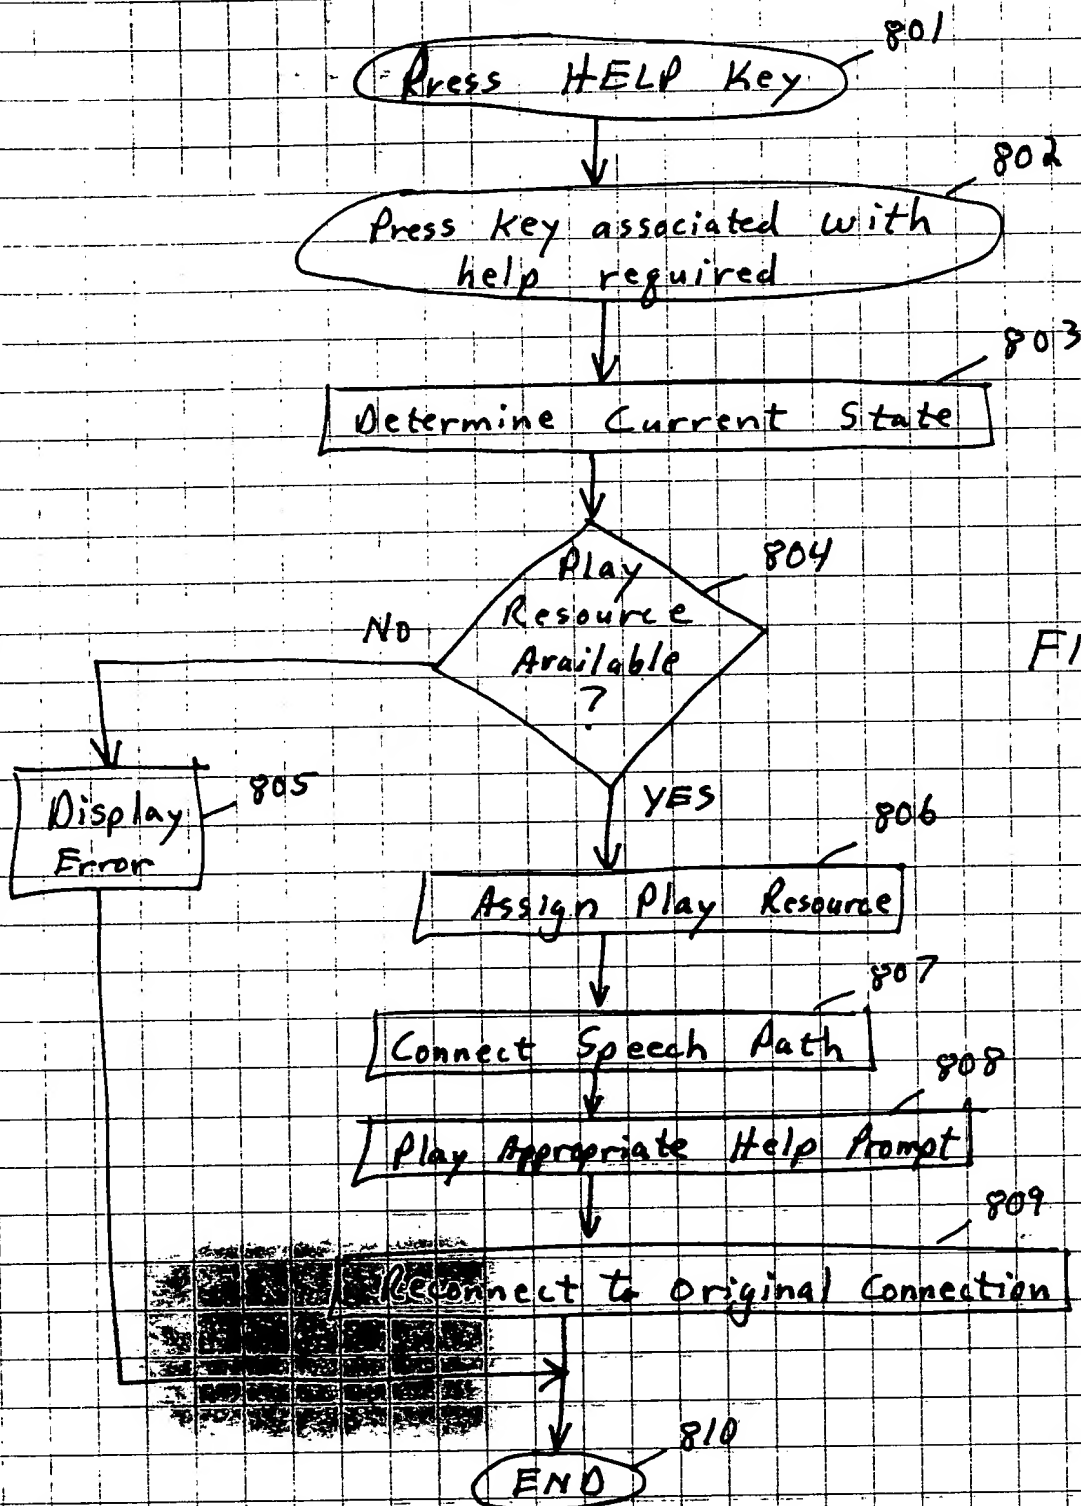 801
Press HELP Key
802
Press key associated with
help required
803
Determine Current State
804
Play
Resource
Available
?
NO
YES
805
Display
Error
806
Assign Play Resource
807
Connect Speech Path
808
Play Appropriate Help Prompt
809
Reconnect to Original Connection
810
END